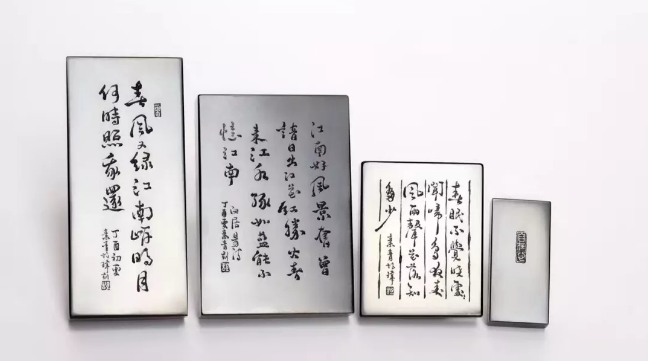 春風又绿江南岸明月
何時照我還
丁酉初夏
江南好風景舊曾
諳日出江花紅勝火春
来江水绿如蓝能不
憶江南
白居易詩
春眠不覺曉處
聞啼鳥夜来
風雨聲花落知
多少